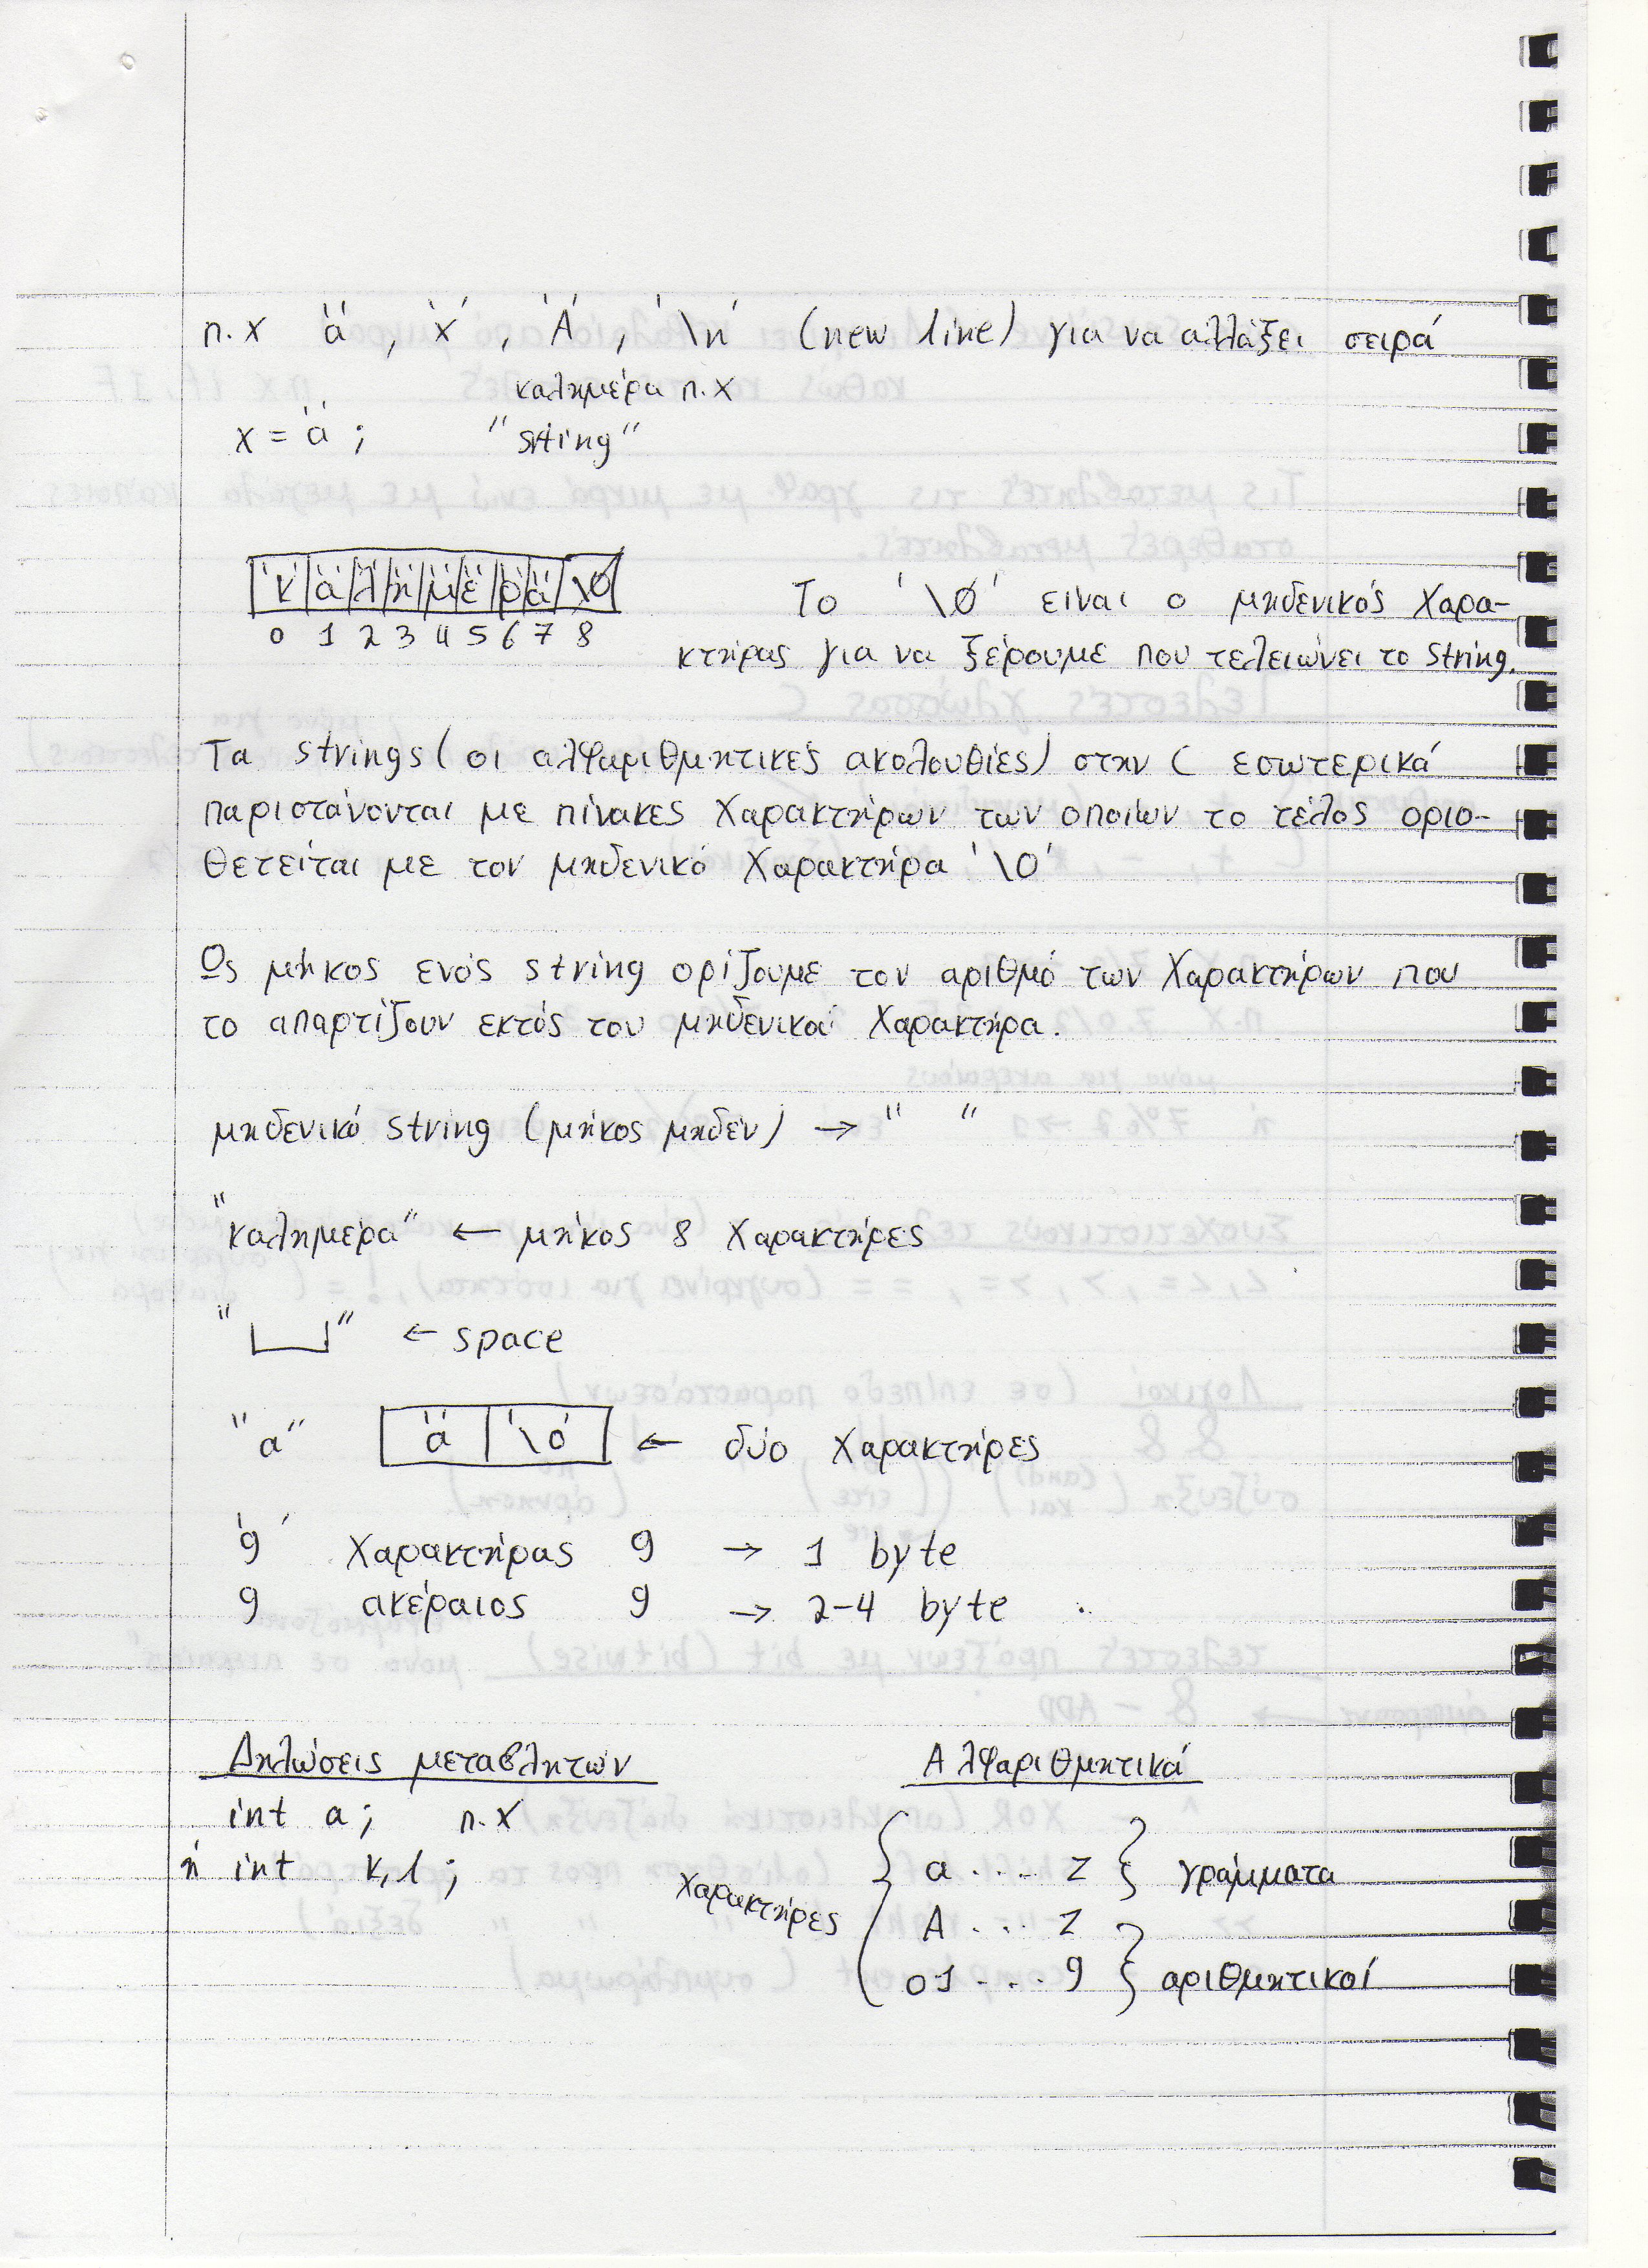 π.χ 'α', 'χ', 'Α', '\n' (new line) για να αλλάξει σειρά
καλημέρα π.χ
x = 'α'; "string"
'κ' 'α' 'λ' 'η' 'μ' 'ε' 'ρ' 'α' '\0'
0 1 2 3 4 5 6 7 8
Το '\0' είναι ο μηδενικός χαρα-
κτήρας για να ξέρουμε που τελειώνει το string.
Τα strings (οι αλφαριθμητικές ακολουθίες) στην C εσωτερικά
παριστάνονται με πίνακες χαρακτήρων των οποίων το τέλος οριο-
θετείται με τον μηδενικό χαρακτήρα '\0'
Ως μήκος ενός string ορίζουμε τον αριθμό των χαρακτήρων που
το απαρτίζουν εκτός του μηδενικού χαρακτήρα.
μηδενικό string (μήκος μηδέν) → " "
"καλημέρα" ← μήκος 8 χαρακτήρες
"⎵" ← space
"α" 'α' '\0' ← δύο χαρακτήρες
'9' χαρακτήρας 9 → 1 byte
9 ακέραιος 9 → 2-4 byte
Δηλώσεις μεταβλητών
int a; π.χ
ή int k,l;
Αλφαριθμητικά
χαρακτήρες { a .... z } γράμματα
A ... Z
0 1 .... 9 } αριθμητικοί